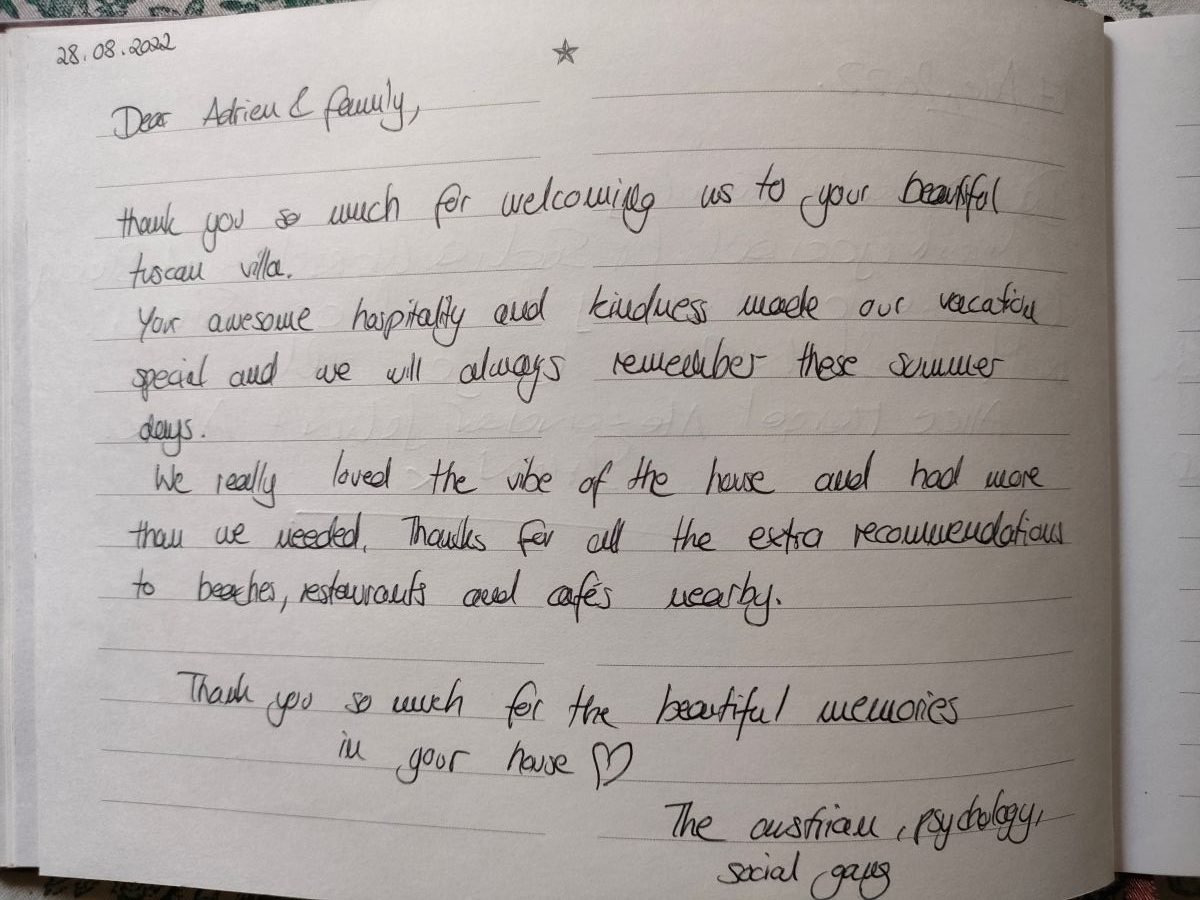 28.08.2022
Dear Adrien & family,
thank you so much for welcoming us to your beautiful
tuscan villa.
Your awesome hospitality and kindness made our vacation
special and we will always remember these summer
days.
We really loved the vibe of the house and had more
than we needed. Thanks for all the extra recommendations
to beaches, restaurants and cafés nearby.
Thank you so much for the beautiful memories
in your house ♡
The austrian, psychology,
social gang